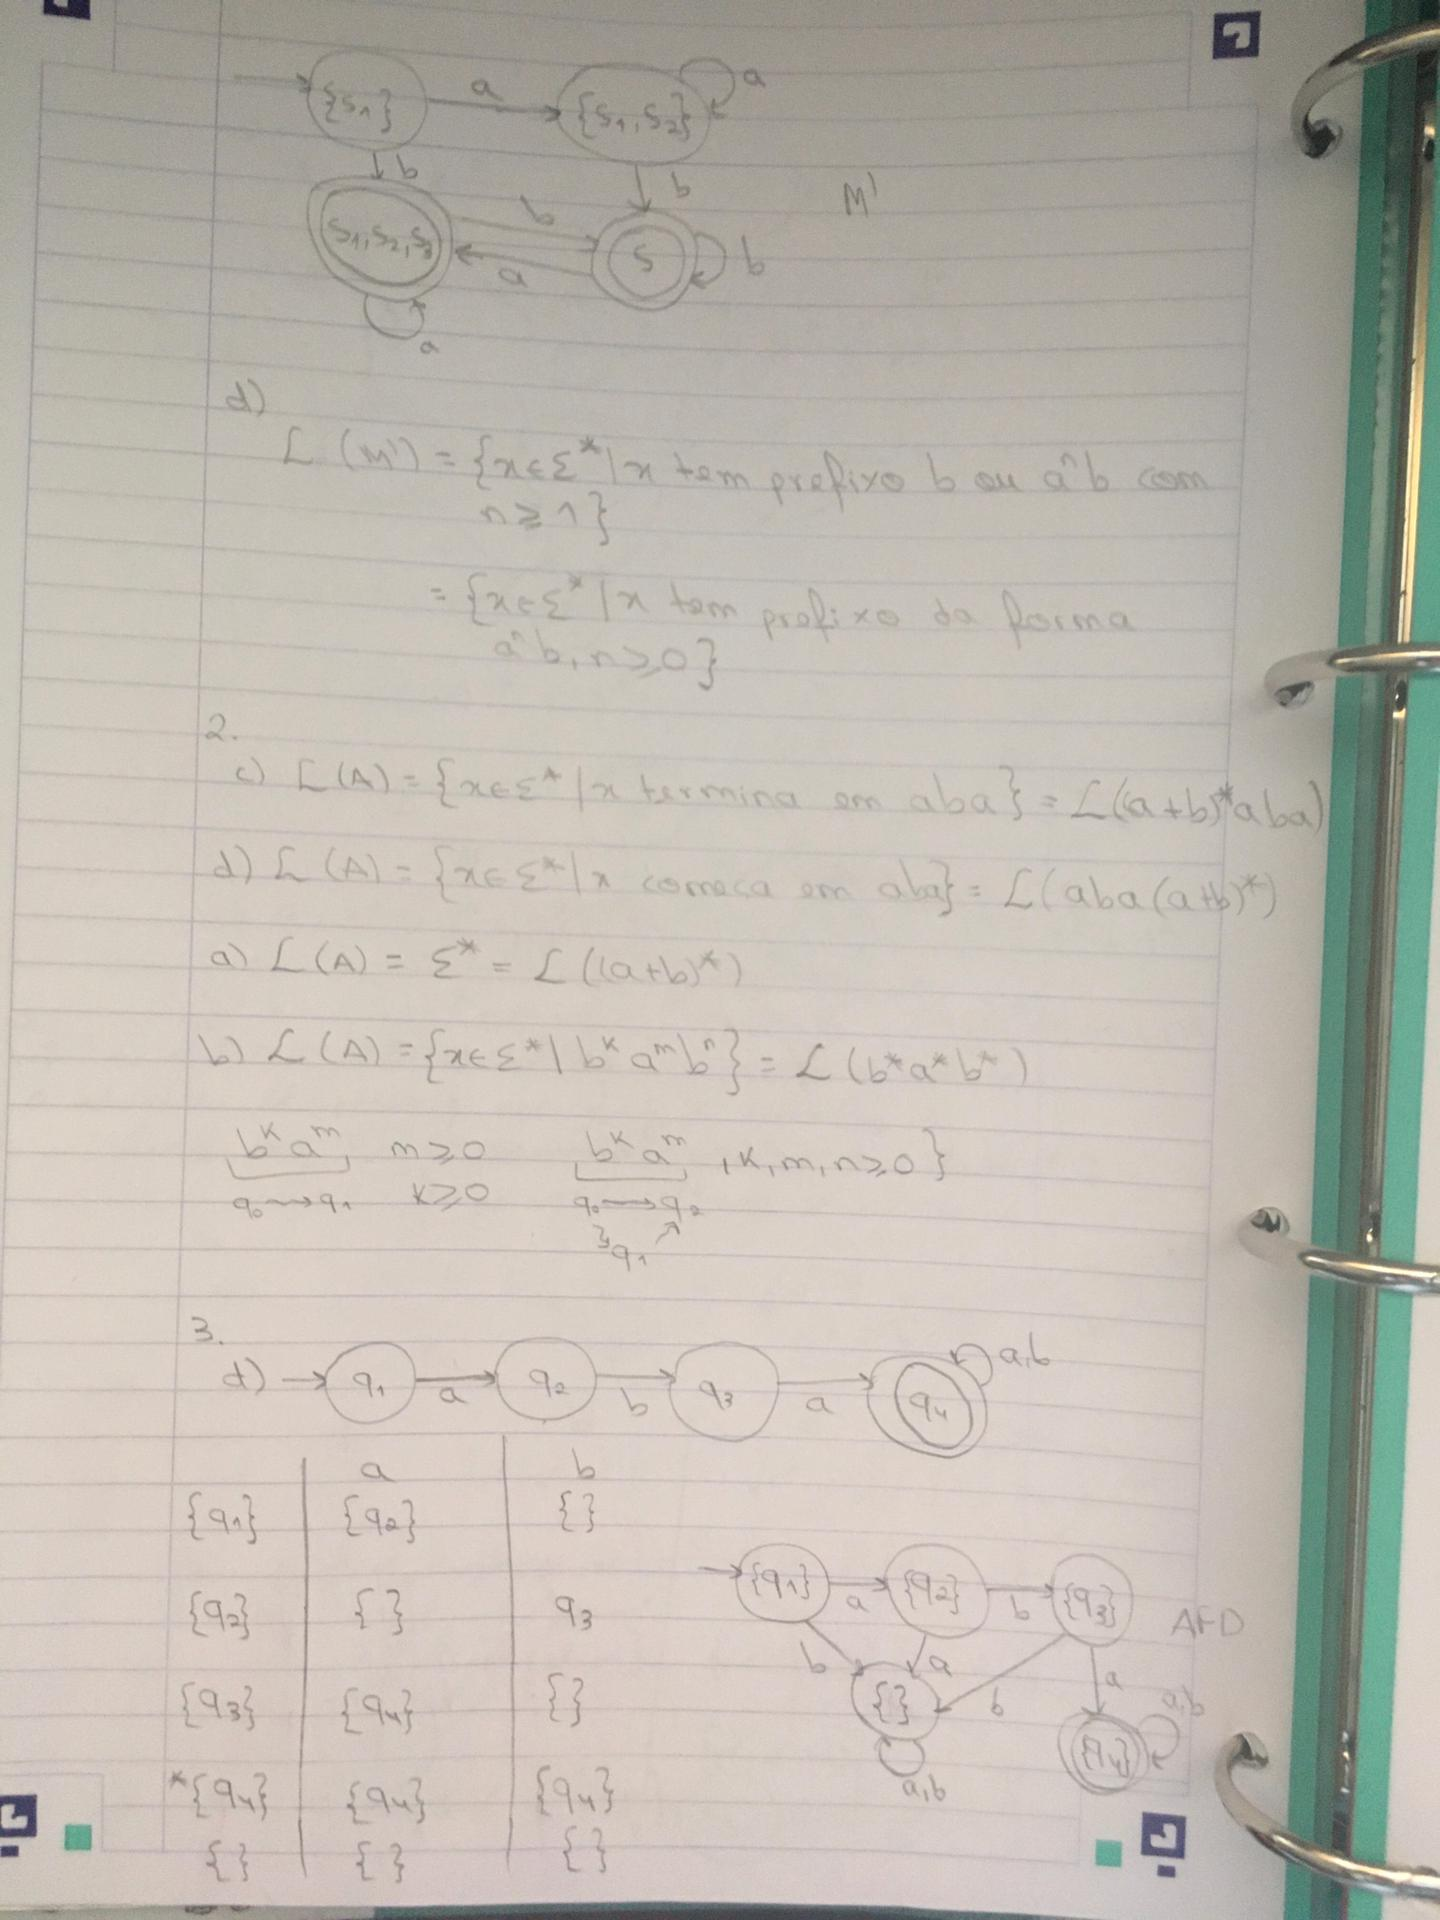 {S1} a {S1,S2} a
b b M'
S1,S2,S3 b a S b
a
d)
L(M') = {x∈Σ* | x tem prefixo b ou aⁿb com
n≥1}
= {x∈Σ* | x tem prefixo da forma
aⁿb, n≥0}
2.
c) L(A) = {x∈Σ* | x termina em aba} = L((a+b)*aba)
d) L(A) = {x∈Σ* | x começa em aba} = L(aba(a+b)*)
a) L(A) = Σ* = L((a+b)*)
b) L(A) = {x∈Σ* | bᵏ aᵐ bⁿ} = L(b*a*b*)
bᵏ aᵐ m≥0 bᵏ aᵐ , k,m,n≥0}
q0 → q1 k≥0 q0 → q2
q1
3.
d) → q1 a q2 b q3 a q4 a,b
a b
{q1} {q2} {}
{q2} {} q3
{q3} {q4} {}
*{q4} {q4} {q4}
{} {} {}
{q1} a {q2} b {q3} AFD
b a b a
{} {q4} a,b
a,b